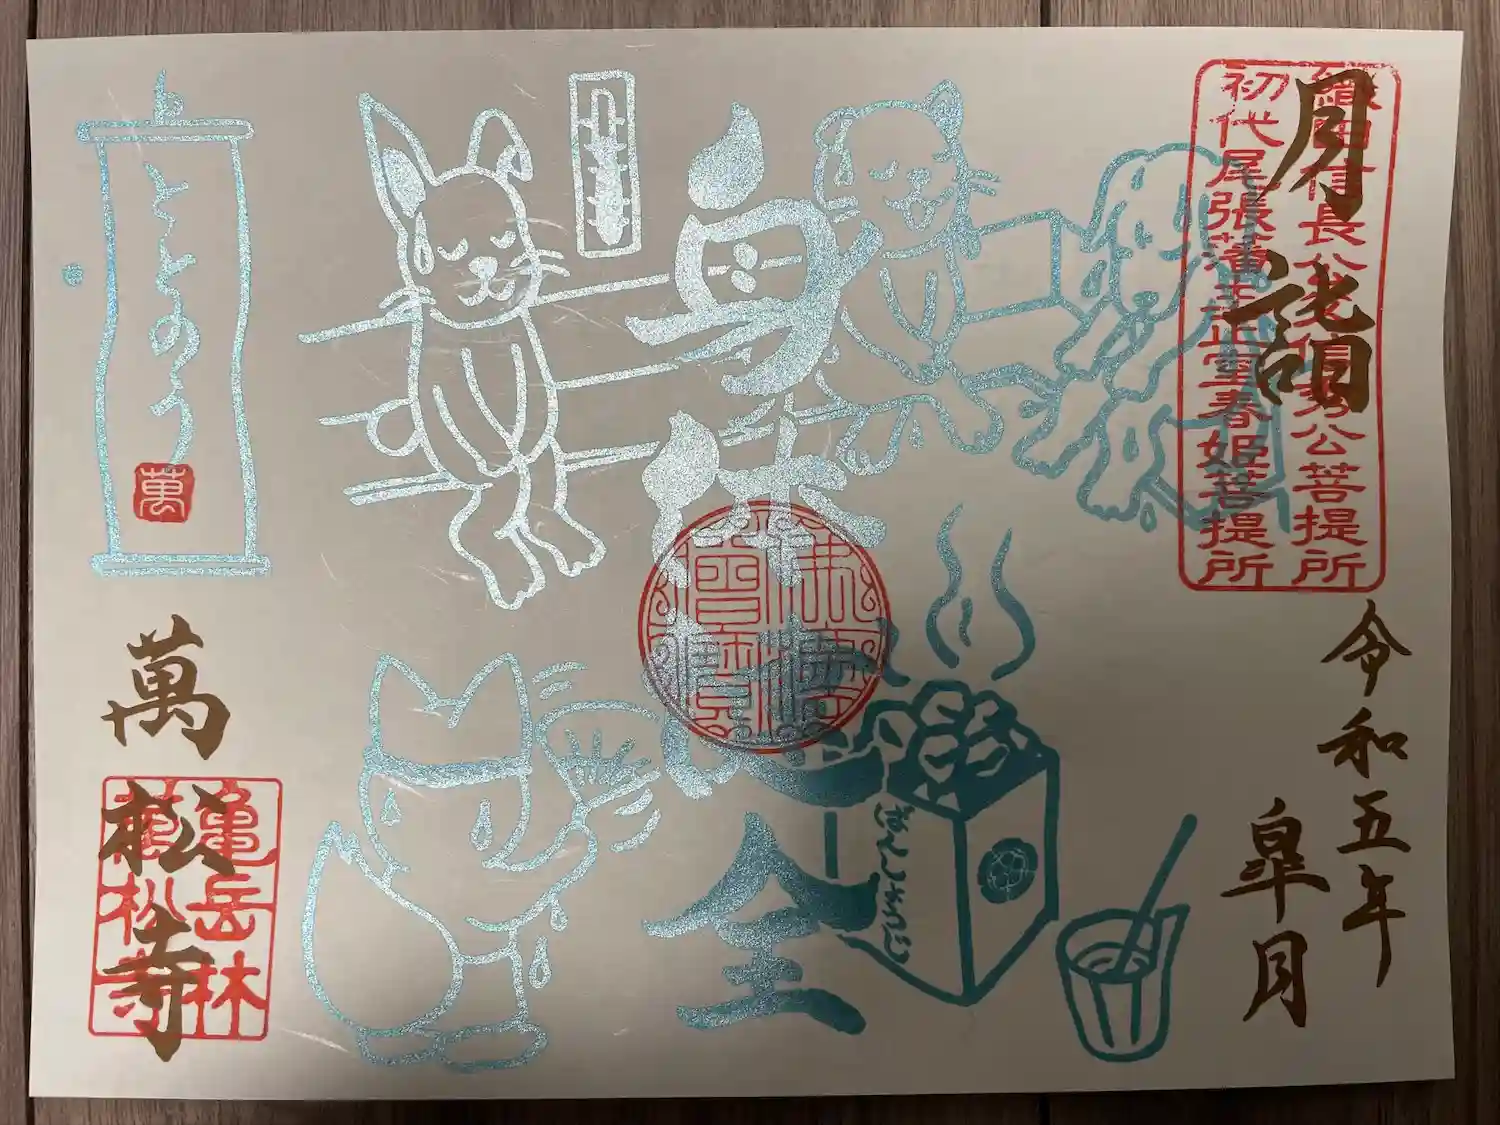 織田信長公父信秀公菩提所
初代尾張藩主正室春姫菩提所
月詣
令和五年
皐月
身体健全
ととのう
萬
萬松寺
亀岳林
萬松寺